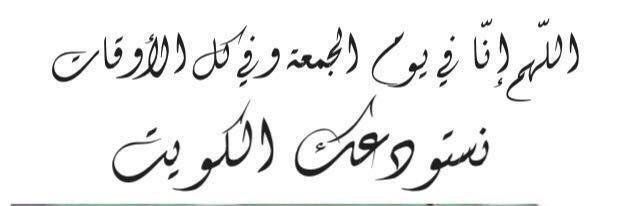 اللّهم إنّا في يوم الجمعة وفي كل الأوقات
نستودعك الكويت